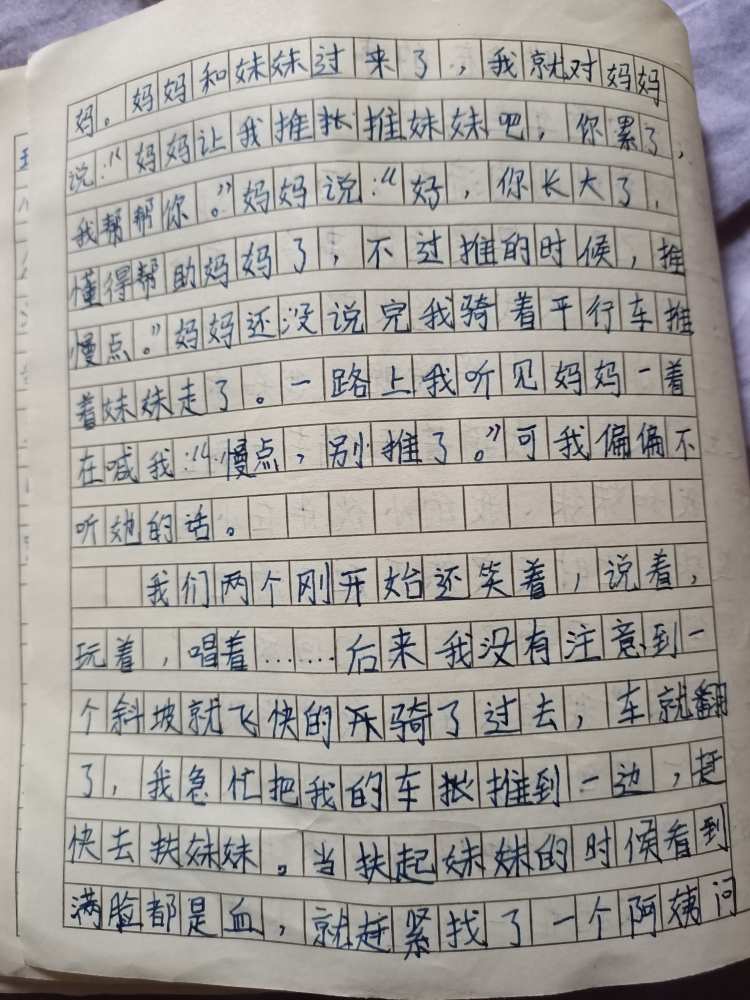 妈。妈妈和妹妹过来了，我就对妈妈
说：“妈妈让我推推妹妹吧，你累了，
我帮帮你。”妈妈说：“好，你长大了，
懂得帮助妈妈了，不过推的时候，推
慢点。”妈妈还没说完我骑着平行车推
着妹妹走了。一路上我听见妈妈一着
在喊我：“慢点，别推了。”可我偏偏不
听她的话。
我们两个刚开始还笑着，说着，
玩着，唱着……后来我没有注意到一
个斜坡就飞快的骑了过去，车就翻
了，我急忙把我的车推到一边，赶
快去扶妹妹。当扶起妹妹的时候看到
满脸都是血，就赶紧找了一个阿姨问